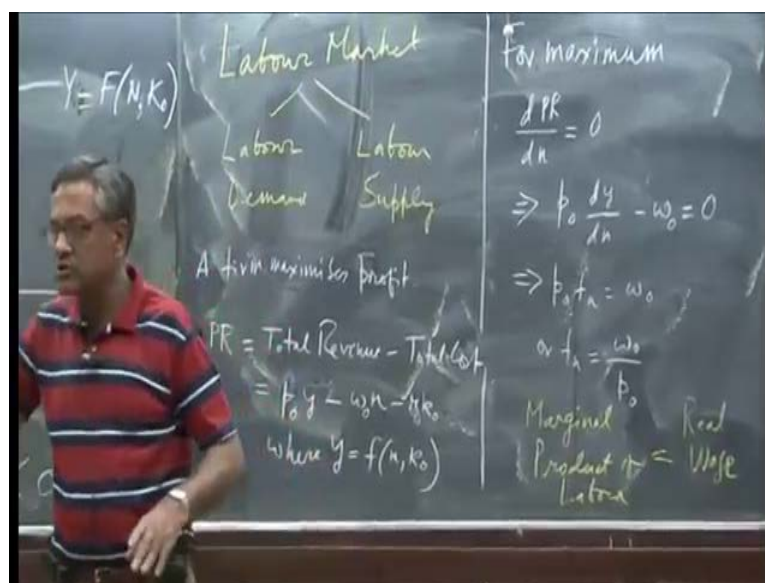 Y = F(N, K₀)
Labour Market
Labour Labour
Demand Supply
A firm maximises profit
PR = Total Revenue - Total Cost
= p₀ y - w₀ n - r₀ k₀
where y = f(n, k₀)
For maximum
dPR/dn = 0
⇒ p₀ dy/dn - w₀ = 0
⇒ p₀ fₙ = w₀
or fₙ = w₀/p₀
Marginal
Product of = Real Wage
Labour